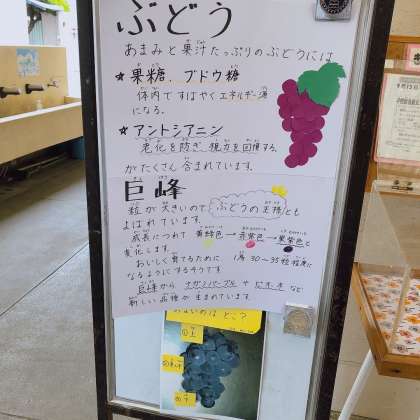 ぶどう
あまみと果汁たっぷりのぶどうには
★果糖、ブドウ糖
体内ですばやくエネルギー源
になる。
★アントシアニン
老化を防ぎ、視力を回復する。
がたくさん含まれています。
巨峰
粒が大きいので ぶどうの王様 とも
よばれています。
成長につれて 黄緑色→赤紫色→黒紫色と
変化します。
おいしく育てるために 1房 30〜35粒程度に
なるようにするそうです。
巨峰から ナガノパープル や ピオーネ など
新しい品種が生まれています。
あまいのはどこ?
①上
②まん中
③下